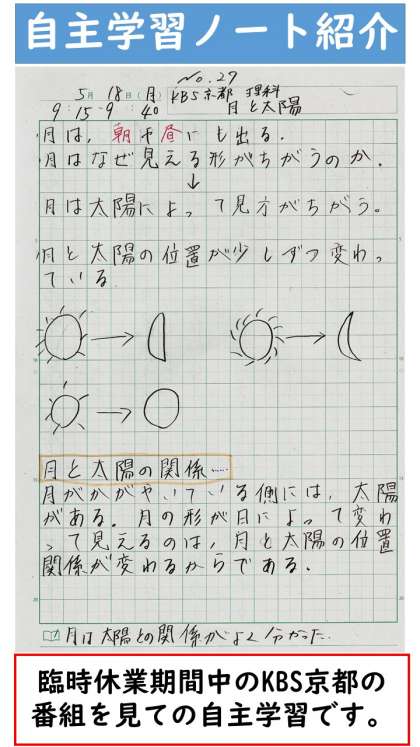 自主学習ノート紹介
No.27
5月 18日(月) KBS京都 理科
9:15-9:40 月と太陽
月は,朝や昼にも出る.
月はなぜ見える形がちがうのか.
↓
月は太陽によって見方がちがう。
月と太陽の位置が少しずつ変わっ
ている.
月と太陽の関係……
月がかがやいている側には,太陽
がある.月の形が日によって変わ
って見えるのは,月と太陽の位置
関係が変わるからである.
月は太陽との関係がよく分かった.
臨時休業期間中のKBS京都の
番組を見ての自主学習です。